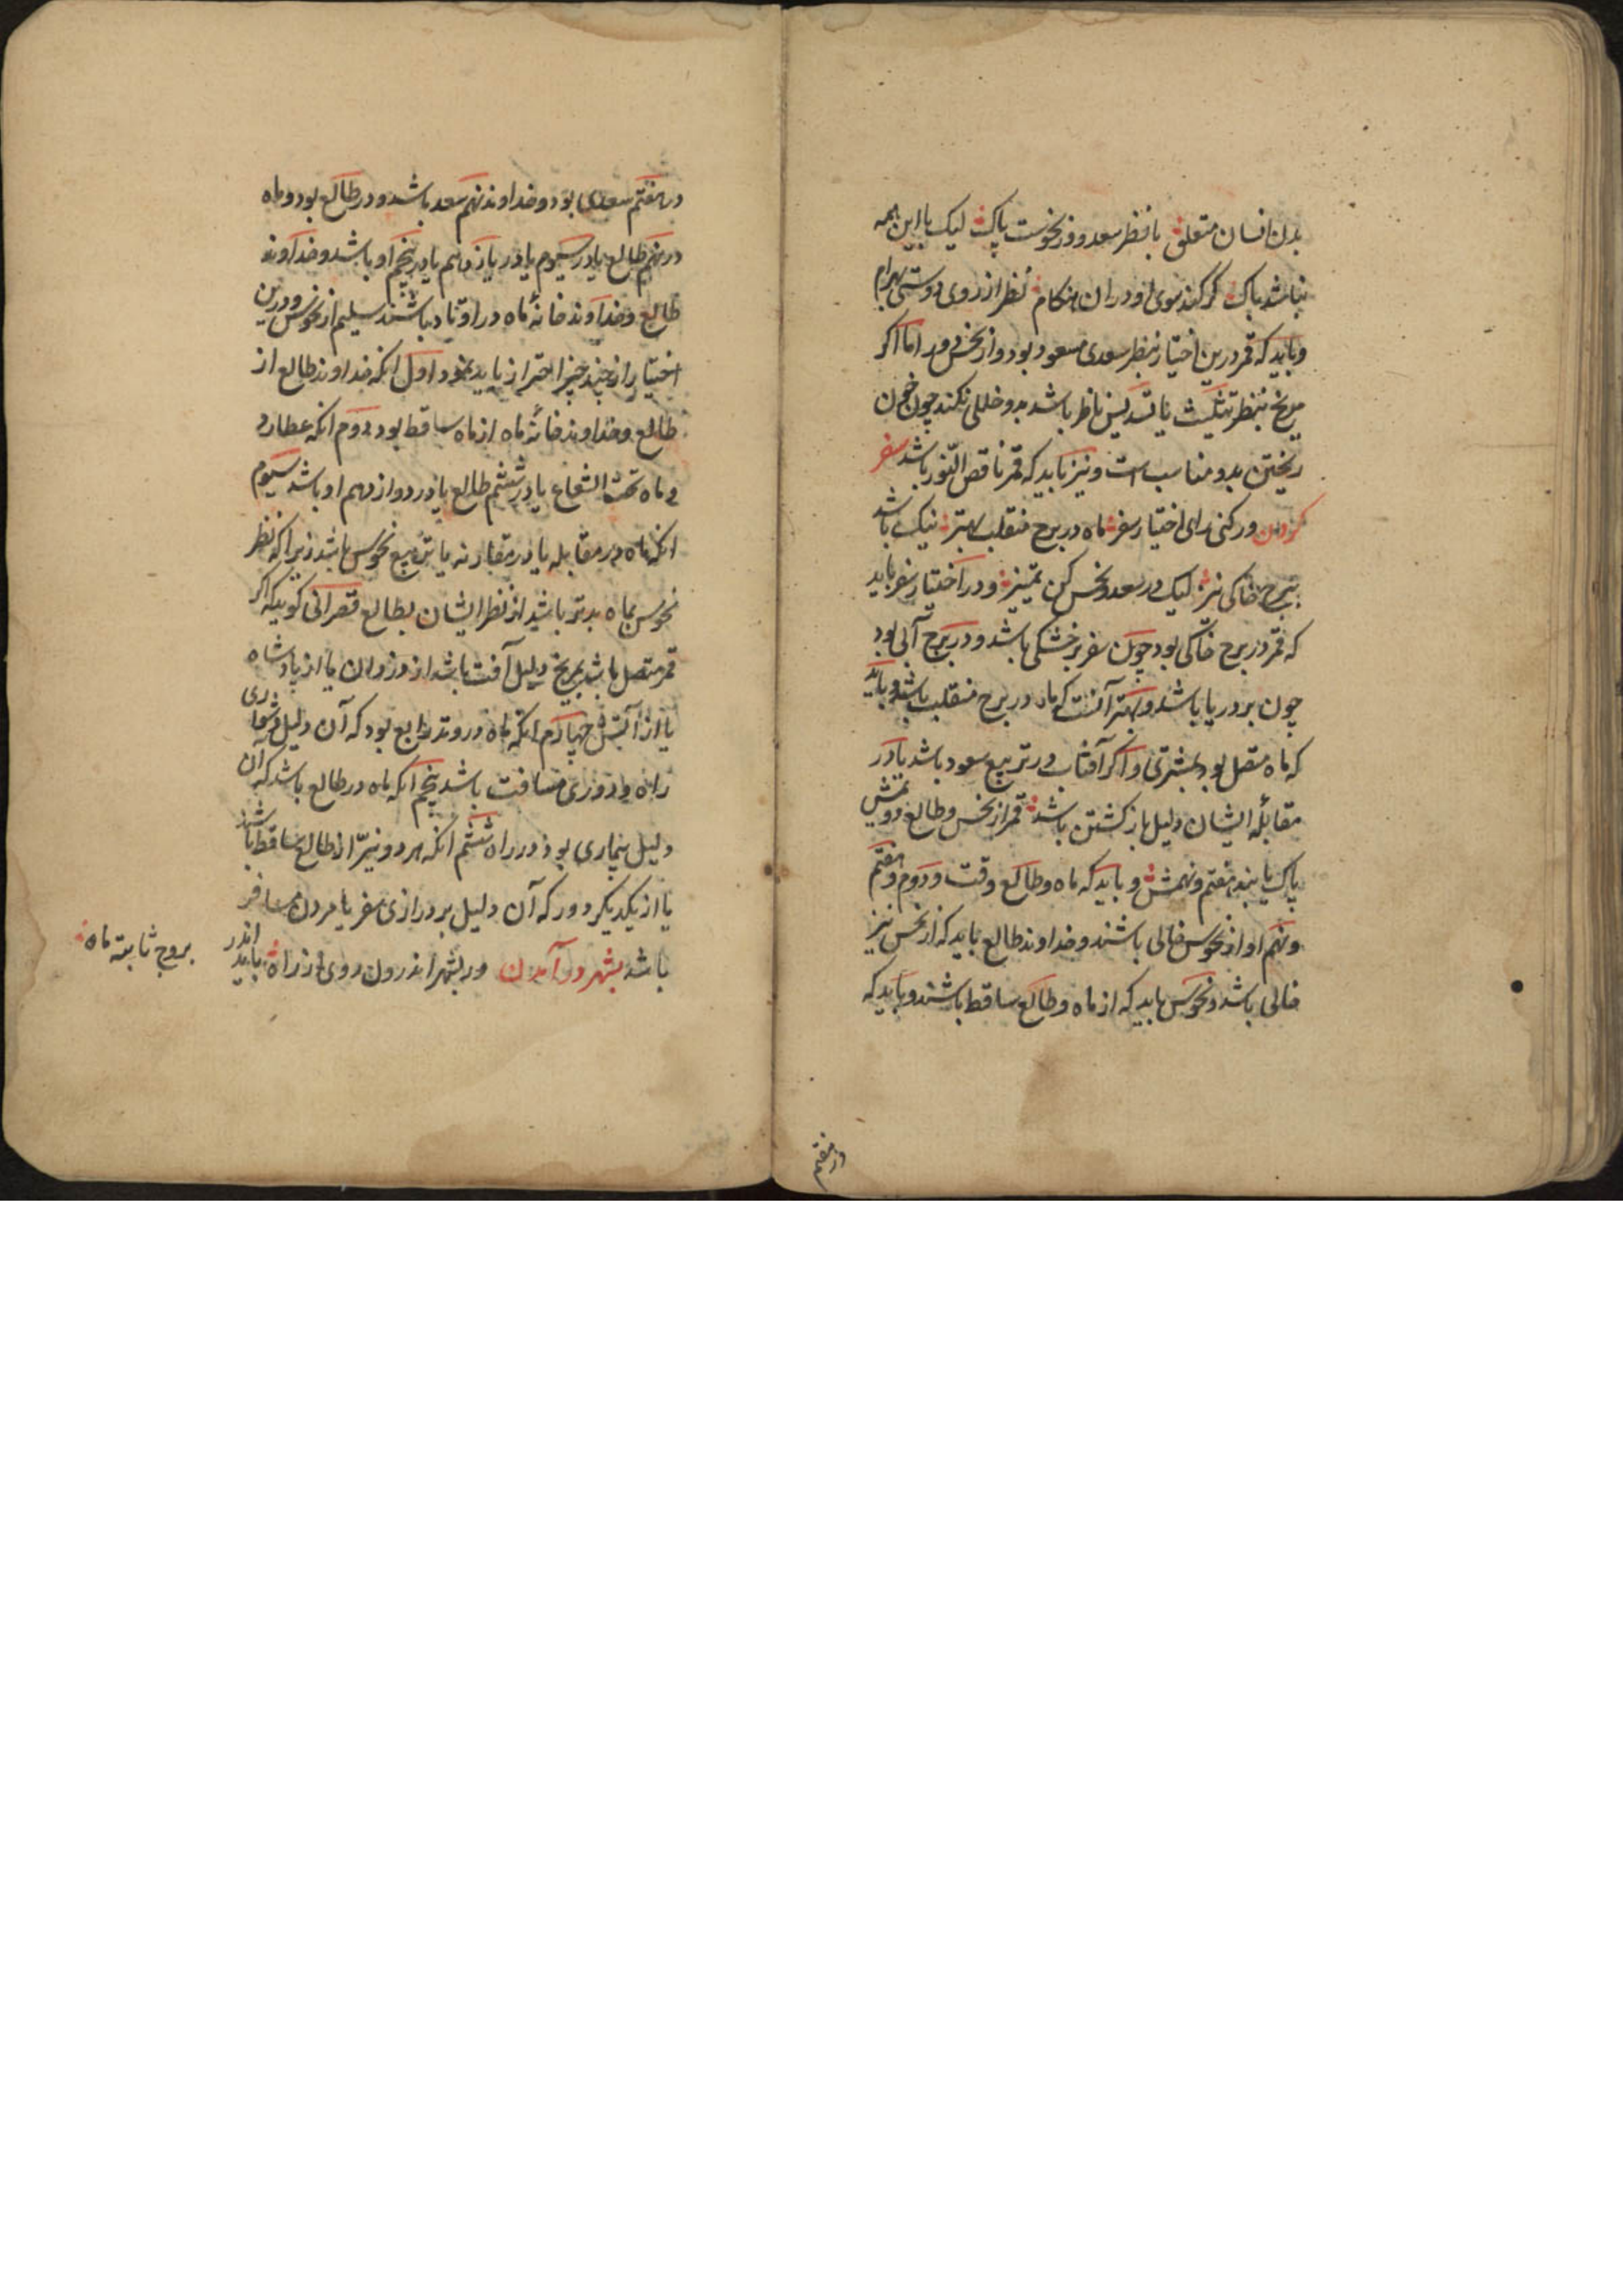 بدن انسان متعلق با نظر سعد و وز نحوست پاک لیک با این همه
نباشد باک گر کند سوی او دران هنکام نظر از روی دوستی بهرام
و باید که قمر درین اختیار بنظر سعدی مسعود بود و از نحس دور اما اکر
مریخ بنظر تثلیث یا تسدیس ناظر باشد بدو خللی نکند چون خون
ریختن بدو مناسب است و نیز باید که قمر ناقص النور باشد سفر
کردن ور کنی رای اختیار سفر ماه در برج منقلب بهتر نیک باشد
ببرج خاکی نیز لیک در سعد و نحس کن تمییز و در اختیار سفر باید
که قمر در برج خاکی بود چون سفر بر خشکی باشد و در برج آبی بود
چون بر دریا باشد و بهتر آنست که ماه در برج منقلب باشد و باید
که ماه متصل بود بمشتری و اکر آفتاب در تربیع سعود باشد یا در
مقابله ایشان دلیل باز کشتن باشد قمر از نحس و طالع و دویمش
پاک یابند هفتم و نهمش و باید که ماه و طالع وقت و دوم و هفتم
و نهم او از نحوس خالی باشند و خداوند طالع باید که از نحس نیز
خالی باشد و نحوس باید که از ماه و طالع ساقط باشند و باید که
در هفتم
در هفتم سعدی بود و خداوند نهم سعد باشد و در طالع بود و ماه
در نهم طالع یا در سیوم یا در یازدهم یا در پنجم او باشد و خداوند
طالع و خداوند خانهٔ ماه در اوتاد باشند سلیم از نحوس و درین
اختیار از چند چیز احتراز باید نمود اول انکه خداوند طالع از
طالع و خداوند خانهٔ ماه از ماه ساقط بود دوم انکه عطارد
و ماه تحت الشعاع یا در ششم طالع یا در دوازدهم او باشد سیوم
انکه ماه در مقابله یا در مقارنه یا تربیع نحوس باشد زیرا که نظر
نحوس بماه بدتر باشد از نظر ایشان بطالع قصرانی کوید که اکر
قمر متصل باشد بمریخ دلیل آفت باشد از دزدان یا از پادشاه
یا از آتش چهارم انکه ماه در وتد رابع بود که آن دلیل دشواری
راه و دوری مسافت باشد پنجم انکه ماه در طالع باشد که آن
دلیل بیماری بود در راه ششم انکه هر دو نیّر از طالع ساقط باشند
یا از یکدیکر دور که آن دلیل بر درازی سفر یا مردن مسافر
باشد بشهر در آمدن ور بشهر اندرون روی از راه باید اندر
بروج ثابته ماه